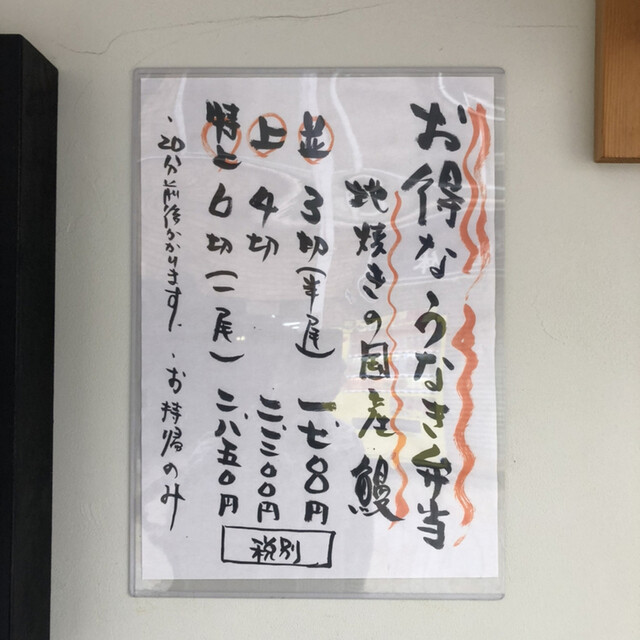 お得なうなぎ弁当
地焼きの国産鰻
並 3切(半尾) 一、七八〇円
上 4切 二、三〇〇円
特上 6切(一尾) 二、八五〇円
税別
・20分前後かかります。・お持帰のみ